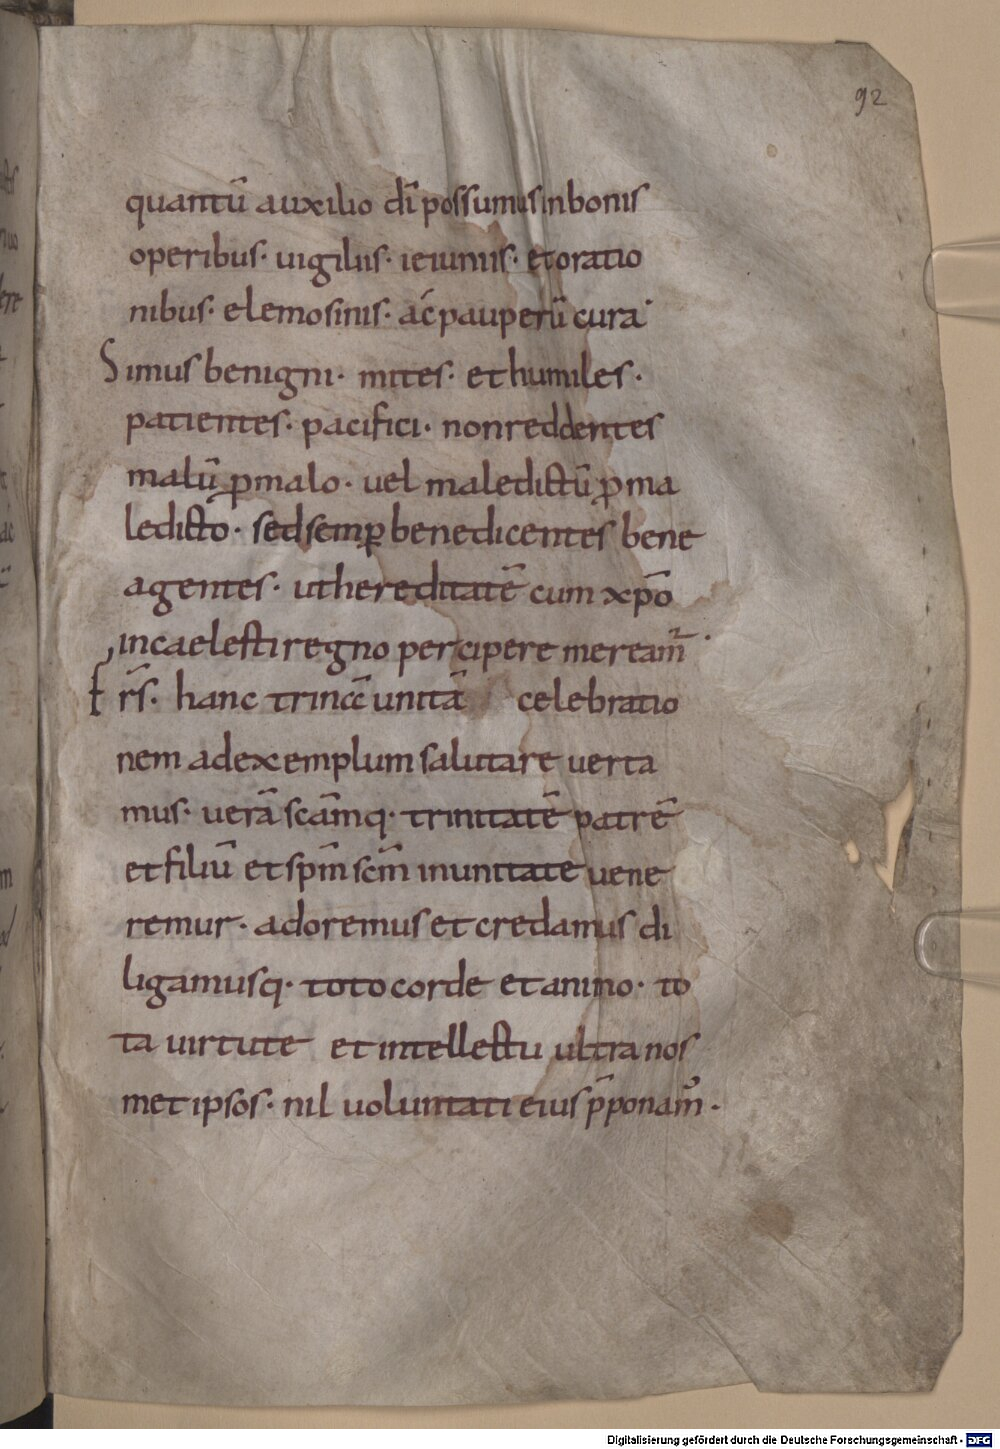 92
quantū auxilio dī possumus in bonis
operibus· uigiliis· ieiuniis· et oratio
nibus· elemosinis· ac̄ pauperū cura·
Simus benigni· mites· et humiles·
patientes· pacifici· non reddentes
malū ꝓ malo· uel maledictū ꝓ ma
ledicto· sed semꝑ benedicentes bene
agentes· ut hereditatē cum xp̄o
in caelesti regno percipere meream̄·
Fr̄s· hanc trinc̄c̄ unitā celebratio
nem ad exemplum salutare uerta
mus· uerā scāmq· trinitatē patrē
et filiū et sp̄m sc̄m in unitate uene
remur· adoremus et credamus di
ligamusq· toto corde et animo· to
ta uirtute et intellectu ultra nos
met ipsos· nil uoluntati eius p̄ponam̄·
Digitalisierung gefördert durch die Deutsche Forschungsgemeinschaft - DFG